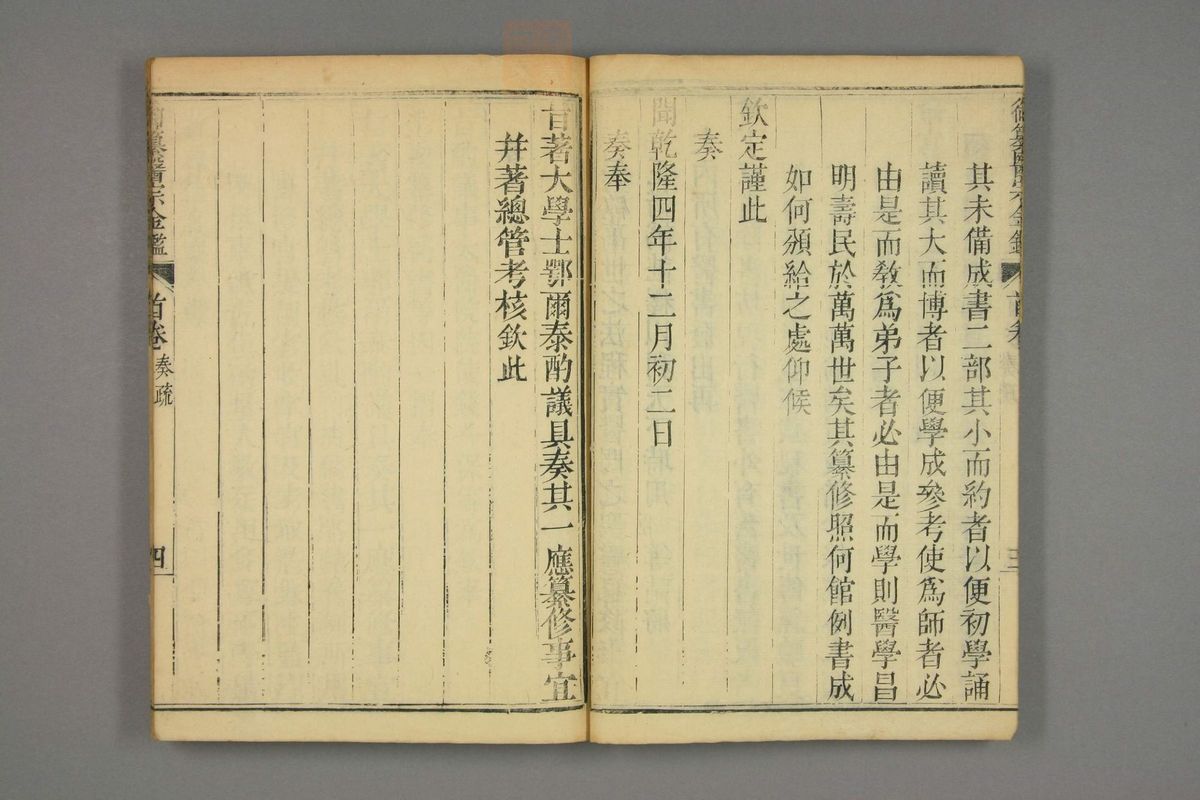 其未備成書二部其小而約者以便初學誦
讀其大而博者以便學成參考使爲師者必
由是而敎爲弟子者必由是而學則醫學昌
明壽民於萬萬世矣其纂修照何館例書成
如何頒給之處仰候
欽定謹此
奏
聞乾隆四年十二月初二日
奏奉
旨著大學士鄂爾泰酌議具奏其一應纂修事宜
幷著總管考核欽此
御纂醫宗金鑑
首卷
奏疏
四